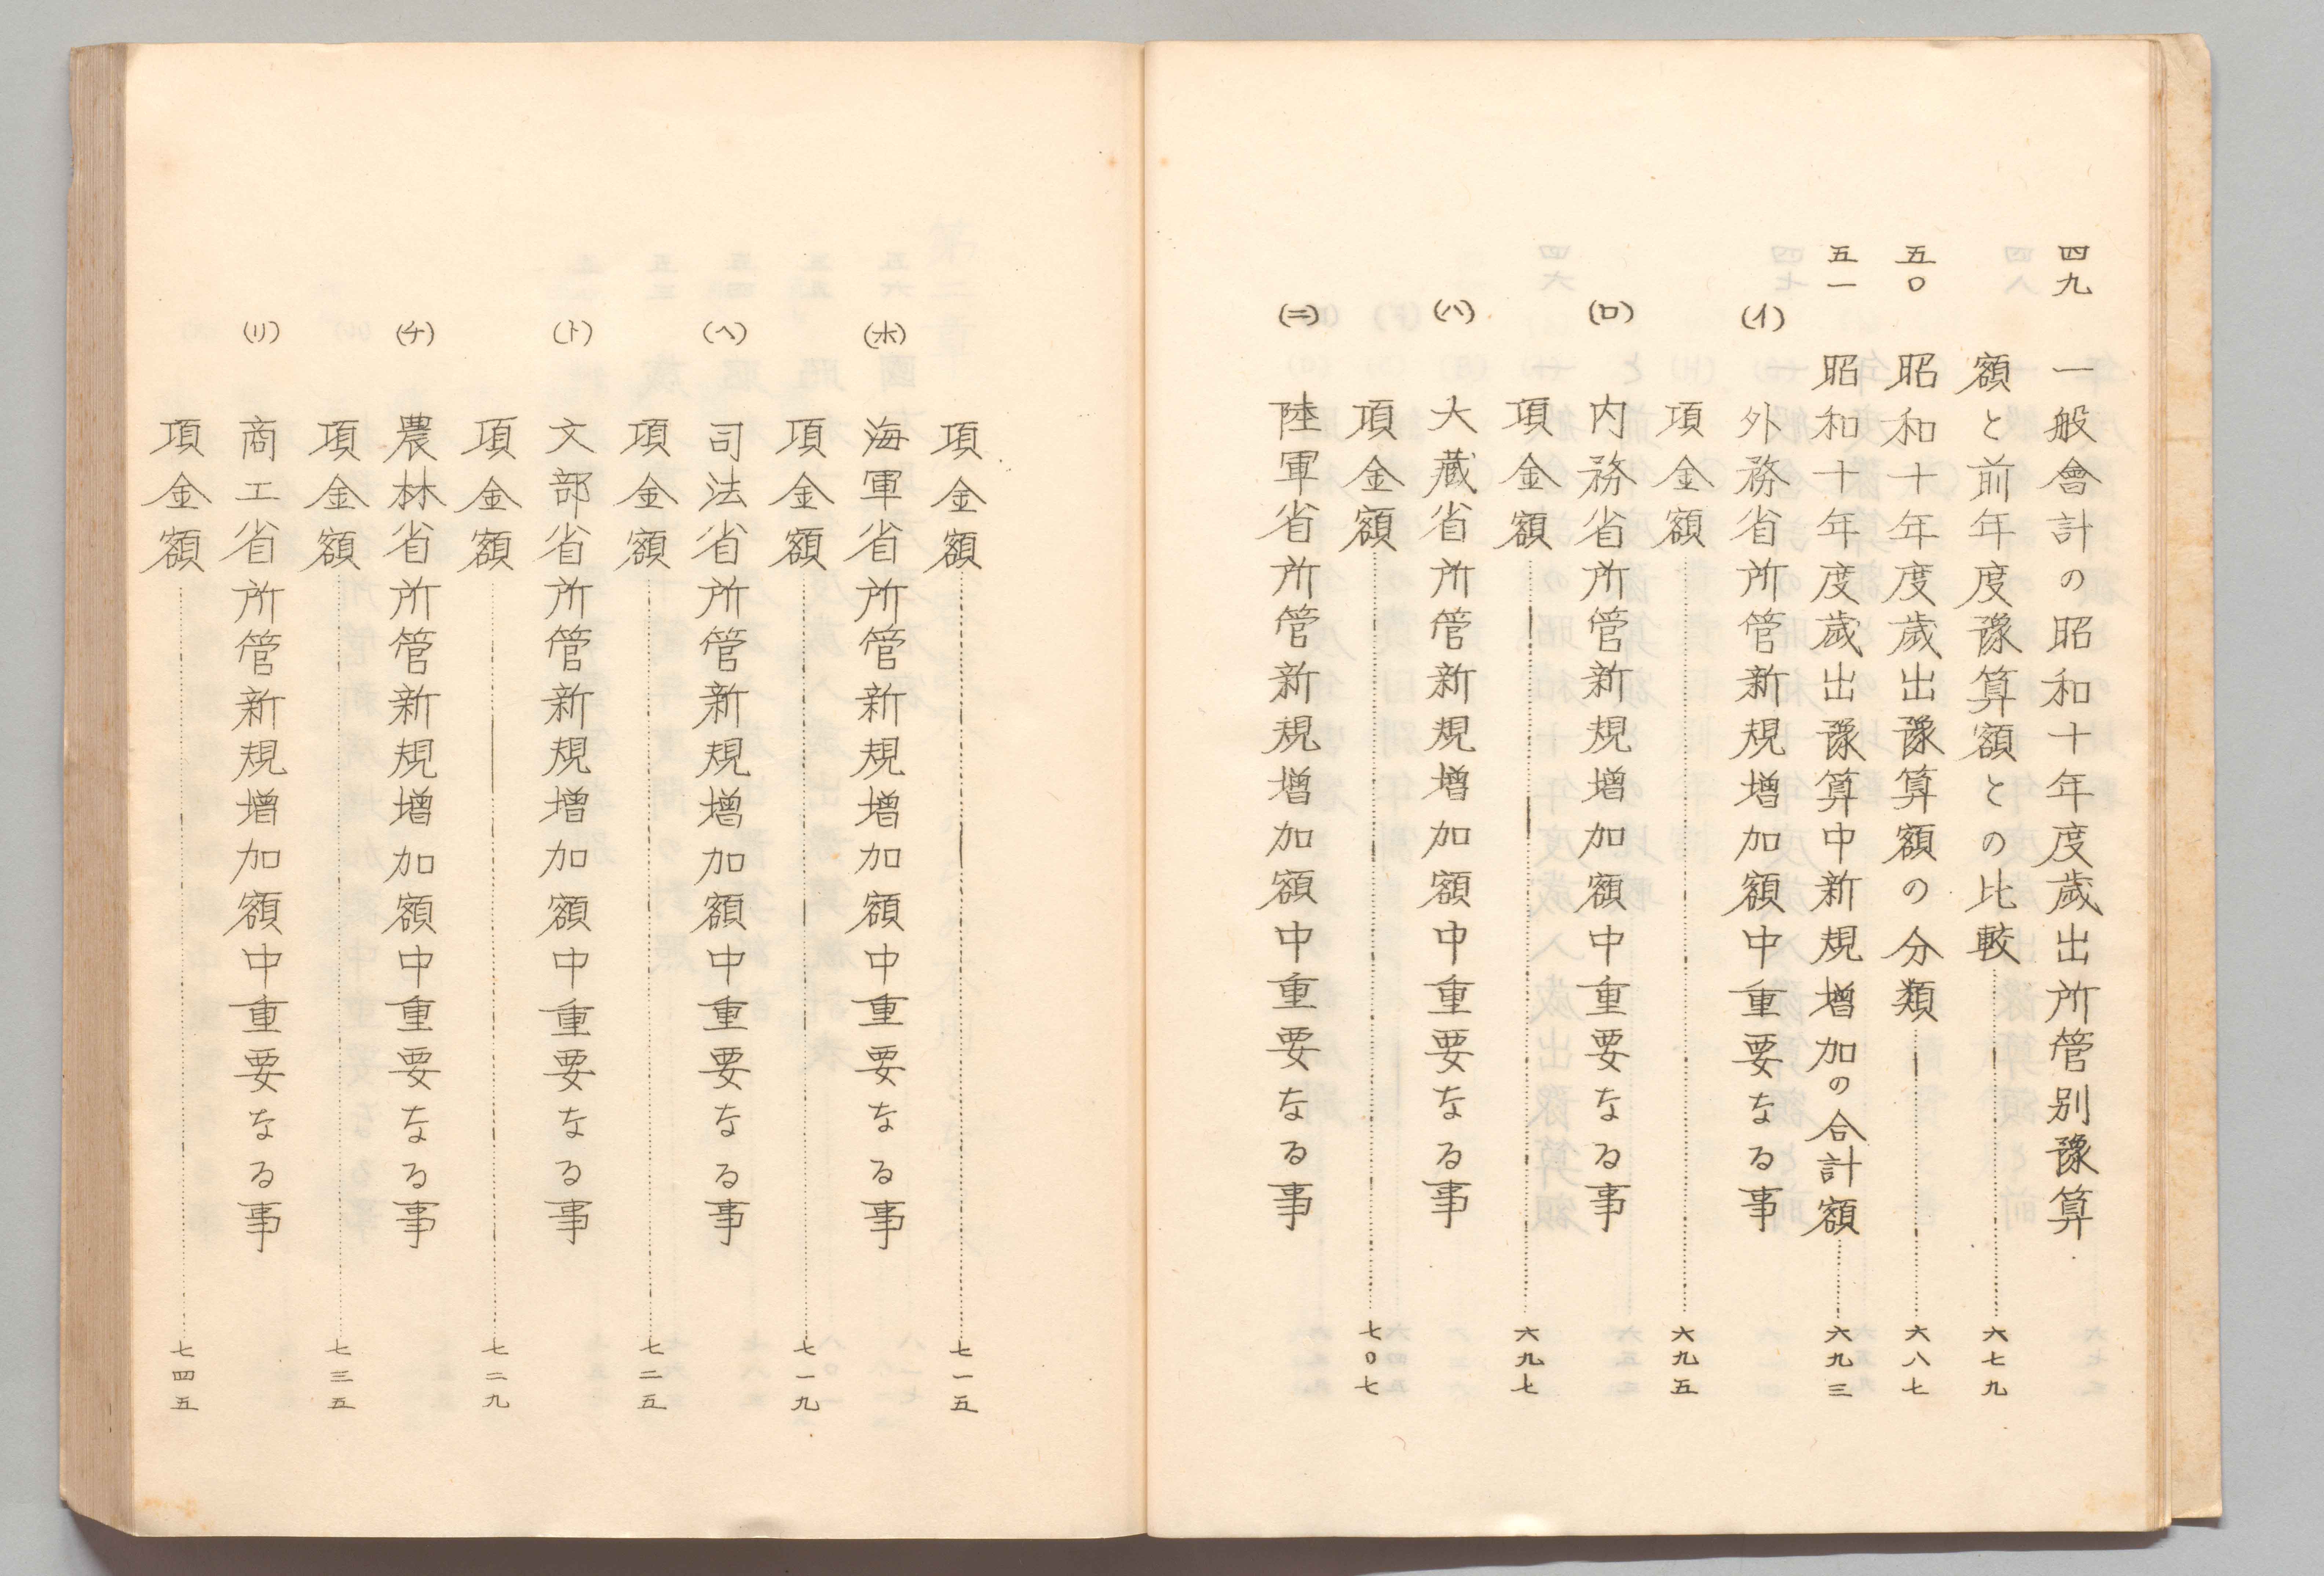 四九 一般會計の昭和十年度歲出所管別豫算
額と前年度豫算額との比較…………六七九
五〇 昭和十年度歲出豫算額の分類…………六八七
五一 昭和十年度歲出豫算中新規增加の合計額…………六九三
(イ) 外務省所管新規增加額中重要なる事
項金額…………六九五
(ロ) 内務省所管新規增加額中重要なる事
項金額…………六九七
(ハ) 大藏省所管新規增加額中重要なる事
項金額…………七〇七
(ニ) 陸軍省所管新規增加額中重要なる事
項金額…………七一五
(ホ) 海軍省所管新規增加額中重要なる事
項金額…………七一九
(ヘ) 司法省所管新規增加額中重要なる事
項金額…………七二五
(ト) 文部省所管新規增加額中重要なる事
項金額…………七二九
(チ) 農林省所管新規增加額中重要なる事
項金額…………七三五
(リ) 商工省所管新規增加額中重要なる事
項金額…………七四五